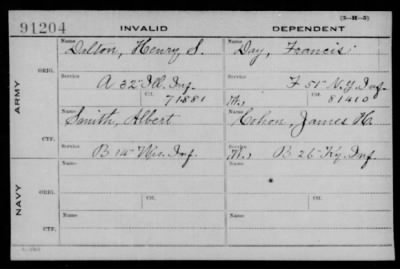 (3-H-5)
91204 INVALID DEPENDENT
Name Name
Dalton, Henry S. Day, Francis
ARMY
ORIG.
Service Service
A 32" Ill. Inf. F 51" N.Y. Inf.
Ctf. 71881 W. Ctf. 81410
Name Name
Smith, Albert James H.
CTF.
Service Service
B 14" Wis. Inf. W. B 26" Ky. Inf.
NAVY
ORIG.
Name Name
Service Ctf. Service Ctf.
CTF.
Name Name
Service Service